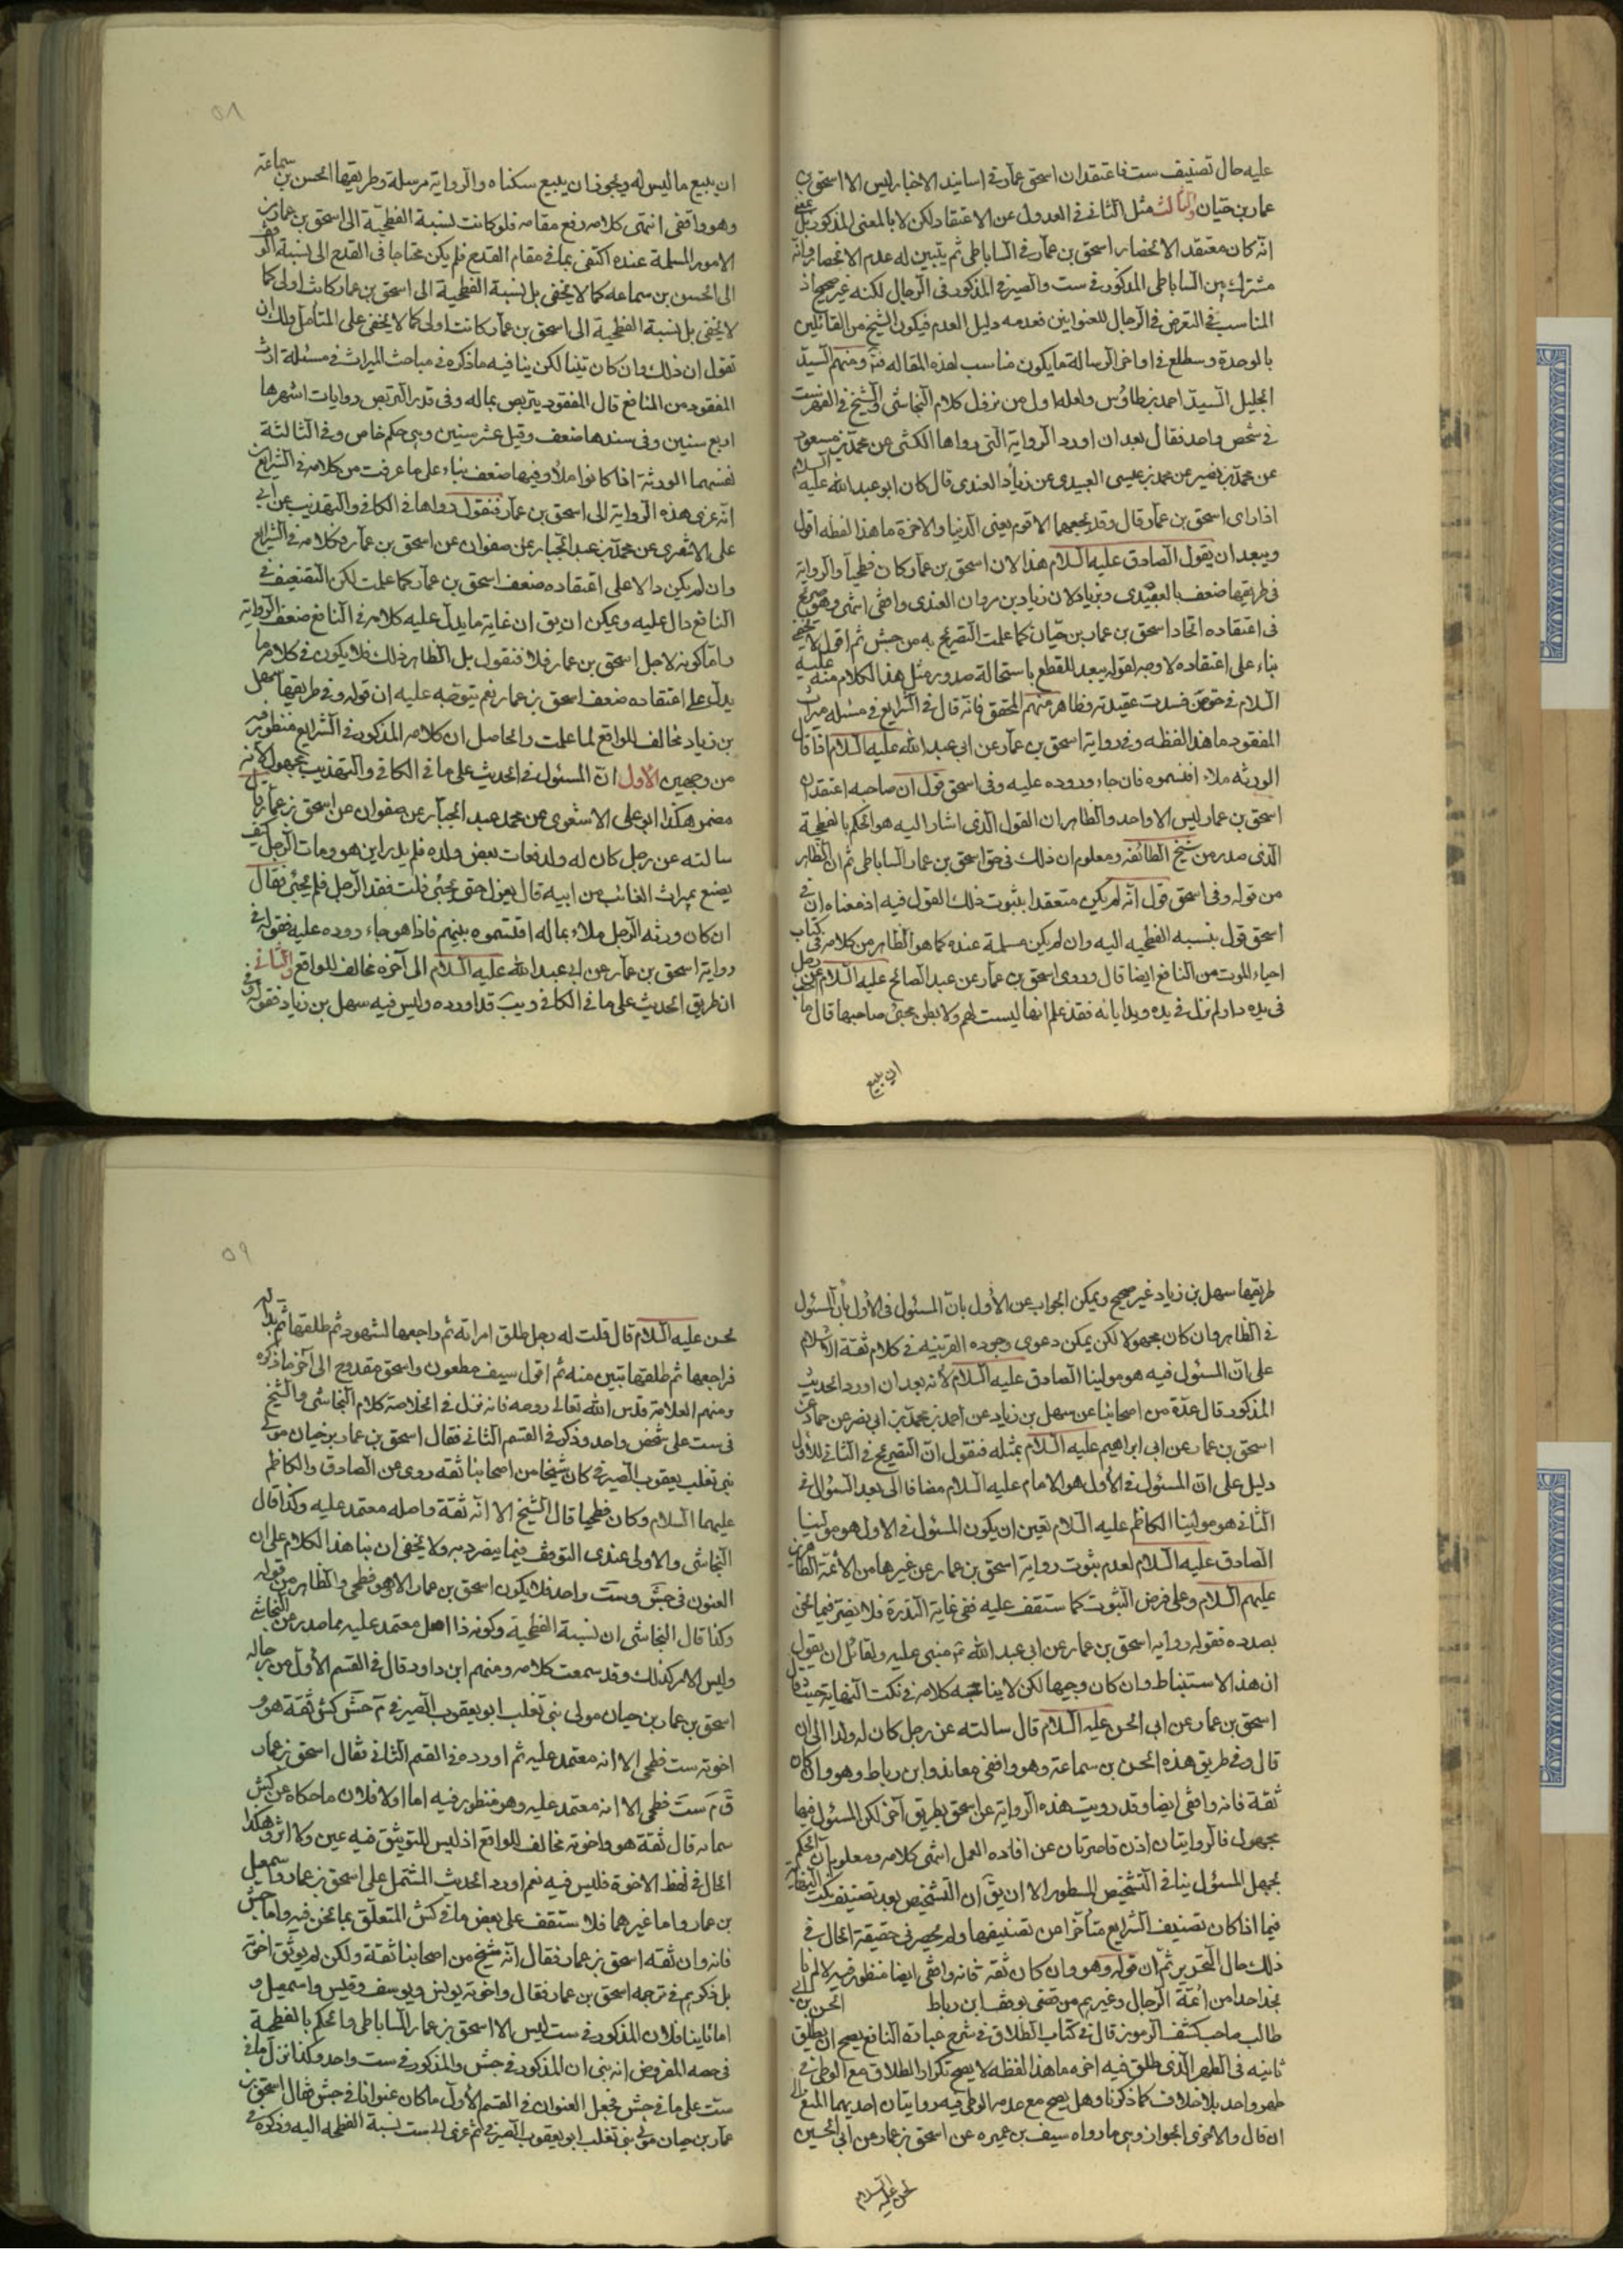 عليه حال تصنيف ست فاعتقد ان اسحق عمار في اسانيد الاخبار ليس الا اسحق بن
عمار بن حيان والثالث مثل الثاني في العدول عن الاعتقاد لكن لا بالمعنى المذكور بل بمعنى
انه كان معتقد الانحصار اسحق بن عمار في الساباطي ثم يتبين له عدم الانحصار وانه
مشترك بين الساباطي المذكور في ست والصيرفي المذكور في الرجال لكنه غير صحيح اذ
المناسب في التعرض في الرجال للعنوانين فعدمه دليل العدم فيكون الشيخ من القائلين
بالوحدة وسطلع في اواخر الرسالة ما يكون مناسب لهذه المقاله ومنهم السيد
الجليل السيد احمد بن طاوس ولعله اول من نزل كلام النجاشي والشيخ في الفهرست
في شخص واحد فقال بعد ان اورد الرواية التي رواها الكشي عن محمد بن مسعود
عن محمد بن نصير عن محمد بن عيسى العبيدي عن زياد العندي قال كان ابو عبد الله عليه السلام
اذا راى اسحق بن عمار قال وقد يجمعهما الاقوام يعني الدنيا والاخرة ما هذا لفظه اقول
ويبعد ان يقول الصادق عليه السلام هذا لان اسحق بن عمار كان فطحيا والرواية
في طريقها ضعف بالعبيدي وبزياد لان زياد بن مروان العندي واقفي انتهى وهو صريح
في اعتقاده اتحاد اسحق بن عمار بن حيان كما علمت التصريح به من جش ثم اقول لا يخفى
بناء على اعتقاده لا وجه لقوله يبعد للقطع باستحالة صدور مثل هذا الكلام منه عليه
السلام في حق من فسدت عقيدته وظاهر منهم المحقق فانه قال في الشرايع في مسئله ميراث
المفقود ما هذا لفظه وفي رواية اسحق بن عمار عن ابي عبد الله عليه السلام اذا كان
الورثه ملاء اقتسموه فان جاء وردوه عليه وفي اسحق قول ان صاحبه اعتقد ان
اسحق بن عمار ليس الا واحد والظاهر ان القول الذي اشار اليه هو الحكم بالفطحية
الذي صدر من شيخ الطائفة ومعلوم ان ذلك في حق اسحق بن عمار الساباطي ثم ان الظاهر
من قوله وفي اسحق قول انه لم يكن متعقدا بثبوت ذلك القول فيه اذ معناه ان في
اسحق قول بنسبه الفطحيه اليه وان لم يكن مسلمة عنده كما هو الظاهر من كلامه في كتاب
احياء الموت من النافع ايضا قال وروى اسحق بن عمار عن عبد الصالح عليه السلام عن رجل
في يده دار لم تزل في يده ويد ابائه فقد علم انها ليست لهم ولا يظن مجئ صاحبها قال ما
ان يبيع
٥٨
ان يبيع ما ليس له ويجوز ان يبيع سكناه والرواية مرسلة وطريقها الحسن بن سماعة
وهو واقفي انتهى كلامه رفع مقامه فلو كانت لنسبة الفطحية الى اسحق بن عمار من
الامور المسلمة عنده اكتفى بها في مقام القدح فلم يكن محتاجا في القدح الى نسبة الوقف
الى الحسن بن سماعه كما لا يخفى بل نسبة الفطحية الى اسحق بن عمار كانت اولى كما
لا يخفى بل نسبة الفطحية الى اسحق بن عمار كانت اولى كما لا يخفى على المتأمل ولك ان
تقول ان ذلك وان كان بينا لكن ينافيه ما ذكره في مباحث الميراث في مسئلة ارث
المفقود من المنافع قال المفقود يتربص بماله وفي قدر التربص روايات اشهرها
اربع سنين وفي سندها ضعف وقيل عشر سنين وهي حكم خاص وفي الثالثة
نفسهما الورثة اذا كانوا ملأ وفيها ضعف بناء على ما عرفت من كلامه في الشرايع
انه عزى هذه الرواية الى اسحق بن عمار فنقول رواها في الكافي والتهذيب عن ابي
على الاشعرى عن محمد بن عبد الجبار عن صفوان عن اسحق بن عمار فكلامه في الشرايع
وان لم يكن دالا على اعتقاده ضعف اسحق بن عمار كما علمت لكن التضعيف في
النافع دال عليه ويمكن ان يق ان غاية ما يدل عليه كلامه في النافع ضعف الرواية
واما كونه لاجل اسحق بن عمار فلا فنقول بل الظاهر ذلك فلا يكون في كلامه ما
يدل على اعتقاده ضعف اسحق بن عمار نعم يتوجه عليه ان قوله وفي طريقها سهل
بن زياد مخالف للواقع لما علمت والحاصل ان كلامه المذكور في الشرايع منظور فيه
من وجهين الاول ان المسئول في الحديث على ما في الكافي والتهذيب مجهول لانه
مضمر هكذا ابو على الاشعرى عن محمد عبد الجبار عن صفوان عن اسحق بن عمار قال
سالته عن رجل كان له ولد فغاب بعض ولده فلم يدر اين هو ومات الرجل كيف
يصنع بميراث الغائب من ابيه قال يعزل حتى يجئ قلت فقد الرجل فلم يجئ فقال
ان كان ورثه الرجل ملاء بماله اقتسموه بينهم فاذا هو جاء ردوه عليه فقوله في
رواية اسحق بن عمار عن ابي عبد الله عليه السلام الى آخره مخالف للواقع والثاني
ان طريق الحديث على ما في الكافي ويب قد اورده وليس فيه سهل بن زياد فقوله في
طريقها سهل بن زياد غير صحيح ويمكن الجواب عن الأول بان المسئول في الأول بأن المسئول
في الظاهر وان كان مجهولا لكن يمكن دعوى وجود القرينه في كلام ثقة الاسلام
على ان المسئول فيه هو مولينا الصادق عليه السلام لأنه بعد ان اورد الحديث
المذكور قال عدة من اصحابنا عن سهل بن زياد عن احمد بن محمد بن ابي نصر عن حماد عن
اسحق بن عمار عن ابي ابراهيم عليه السلام بمثله فنقول ان التصريح في الثاني للأول
دليل على ان المسئول في الأول هو الامام عليه السلام مضافا الى بعد السئوال في
الثاني هو مولينا الكاظم عليه السلام تعين ان يكون المسئول في الاول هو مولينا
الصادق عليه السلام لعدم ثبوت رواية اسحق بن عمار عن غيرها من الأئمة الطاهرين
عليهم السلام وعلى فرض الثبوت كما ستقف عليه ففي غاية الندرة فلا نضر فيما نحن
بصدده فقوله رواية اسحق بن عمار عن ابي عبد الله ثم منبى عليه ولقائل ان يقول
ان هذا الاستنباط وان كان وجيها لكن لا يناسبه كلامه في نكت النهاية حيث قال
اسحق بن عمار عن ابي الحسن عليه السلام قال سالته عن رجل كان له ولد الى ان
قال وفي طريق هذه الحسن بن سماعة وهو واقفي معاند وابن رباط وهو وان كان
ثقة فانه واقفي ايضا وقد رويت هذه الرواية عن اسحق بطريق آخر لكن المسئول فيها
مجهول فالروايتان اذن قاصرتان عن افاده العمل انتهى كلامه ومعلوم ان الحكم
بجهل المسئول ينافي التشخيص المسطور الا ان يق ان التشخيص بعد تصنيف نكت النهاية
فيما اذا كان تصنيف الشرايع متأخرا من تصنيفها ولم يحصر في حقيقة الحال في
ذلك حال التحرير ثم ان قوله وهو وان كان ثقه فانه واقفي ايضا منظور فيه لانا لم
نجد احدا من ائمة الرجال وغيرهم من قضى بوقف ابن رباط الحسن بن ابي
طالب صاحب كشف الرموز قال في كتاب الطلاق في شرح عبارة النافع يصح ان يطلق
ثانيه في الطهر الذي طلق فيه اخره ما هذا لفظه لا يصح تكرار الطلاق مع الوطي في
طهر واحد بلا خلاف كما ذكرنا وهل يصح مع عدم الوطي فيه روايتان احديهما المنع الى
ان قال والاخرى الجواز وهي ما رواه سيف بن عميره عن اسحق بن عمار عن ابي الحسين
الحسن عليه السلام
٥٩
لحسن عليه السلام قال قلت له رجل طلق امراته ثم راجعها لشهود ثم طلقها ثم بدا له
فراجعها ثم طلقها تبين منه ثم اقول سيف مطعون واسحق مقدوح الى آخر ما ذكره
ومنهم العلامة قدس الله تعالى روحه فانه نزل في الخلاصة كلام النجاشي والشيخ
في ست على شخص واحد وذكر في القسم الثاني فقال اسحق بن عمار بن حيان مولى
بني تغلب يعقوب الصيرفي كان شيخا من اصحابنا ثقه روى عن الصادق والكاظم
عليهما السلام وكان فطحيا قال الشيخ الا انه ثقة واصله معتمد عليه وكذا قال
النجاشي والاولى عندى التوقف فيما ينفرد به ولا يخفى ان بنا هذا الكلام على ان
العنون في جش وست واحد فلا يكون اسحق بن عمار الا وهو فطحي والظاهر من قوله
وكذا قال النجاشي ان نسبة الفطحية وكونه ذا اصل معتمد عليه مما صدر عن النجاشي
وليس الامر كذلك وقد سمعت كلامه ومنهم ابن داود قال في القسم الأول من رجاله
اسحق بن عمار بن حيان مولى بني تغلب ابو يعقوب الصيرفي م جش كش ثقة هو و
اخوته ست فطحي الا انه معتمد عليه ثم اورده في القسم الثاني فقال اسحق بن عمار
ق م ست فطحي الا انه معتمد عليه وهو منظور فيه اما اولا فلان ما حكاه عن كش
سمانه قال ثقة هو واخوته مخالف للواقع اذ ليس للتوثيق فيه عين ولا اثر وهكذا
الحال في لفظ الاخوة فليس فيه نعم اورد الحديث المشتمل على اسحق بن عمار واسمعيل
بن عمار واما غيرهما فلا ستقف على بعض ما في كش المتعلق بما نحن فيه واما جش
فانه وان ثقه اسحق بن عمار فقال انه شيخ من اصحابنا ثقة ولكن لم يوثق اخوته
بل ذكرهم في ترجمه اسحق بن عمار فقال واخوته يونس ويوسف وقيس واسمعيل و
اما ثانيا فلان المذكور في ست ليس الا اسحق بن عمار الساباطي والحكم بالفطحية
في حصه المفروض انه بنى ان المذكور في جش والمذكور في ست واحد وكذا نزل ما في
ست على ما في جش فجعل العنوان في القسم الأول ما كان عنوانا في جش فقال اسحق بن
عمار بن حيان مولى بني تغلب ابو يعقوب الصيرفي ثم عزى الى ست نسبة الفطحيه اليه وذكره في